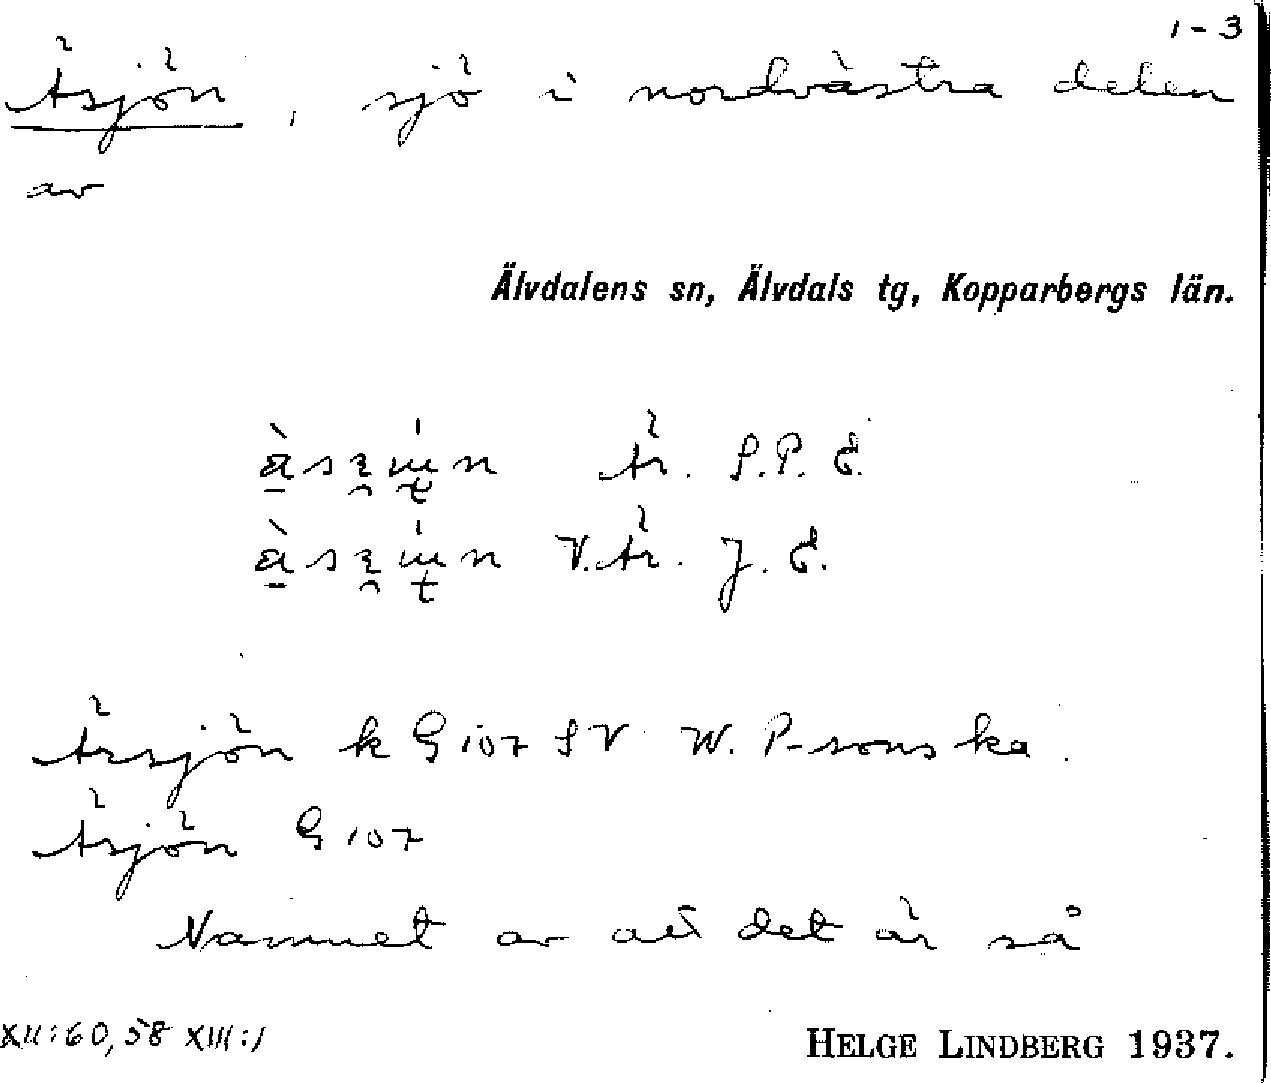 1-3
Äsjön, sjö i nordvästra delen
av
Älvdalens sn, Älvdals tg, Kopparbergs län.
Är. S.P.E.
V.Är. J.E.
Ärsjön k G 107 SV W. P-sons ka.
Ärjön G 107
Namnet av att det är så
XII:60,58 XIII:1
HELGE LINDBERG 1937.